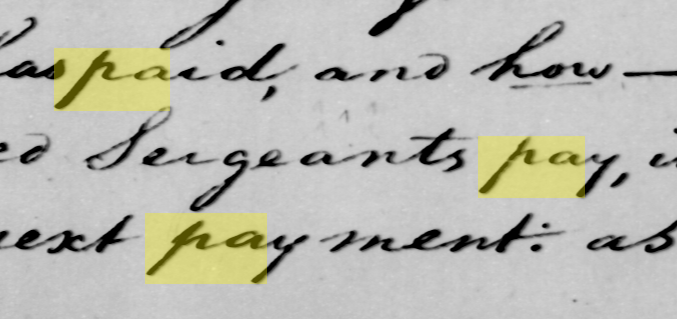 as paid, and how—
ed Sergeants pay, i
next payment: as